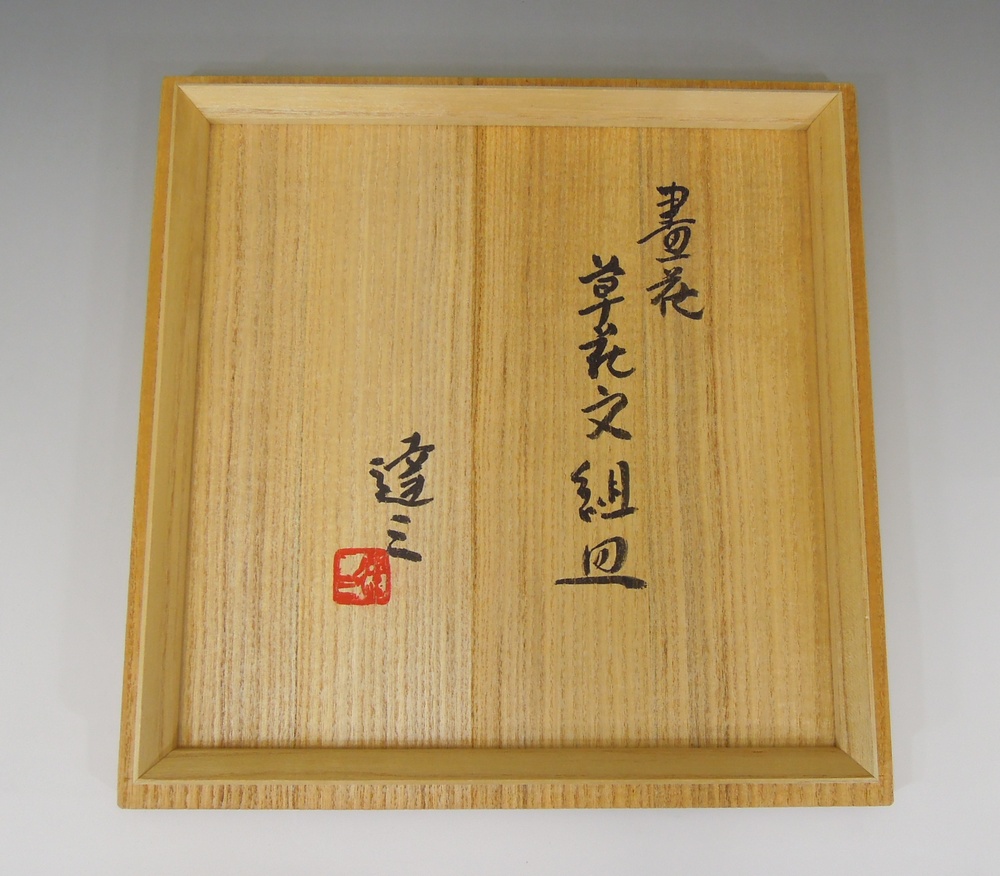 畫花
草花文組皿
達三